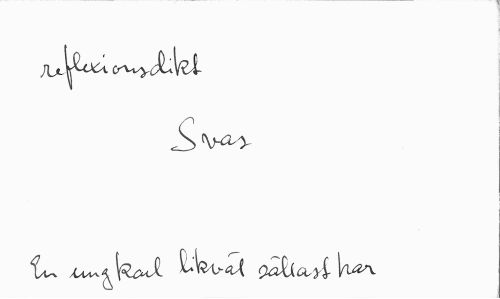 reflexionsdikt
Svar
En ungkarl likväl sällast har